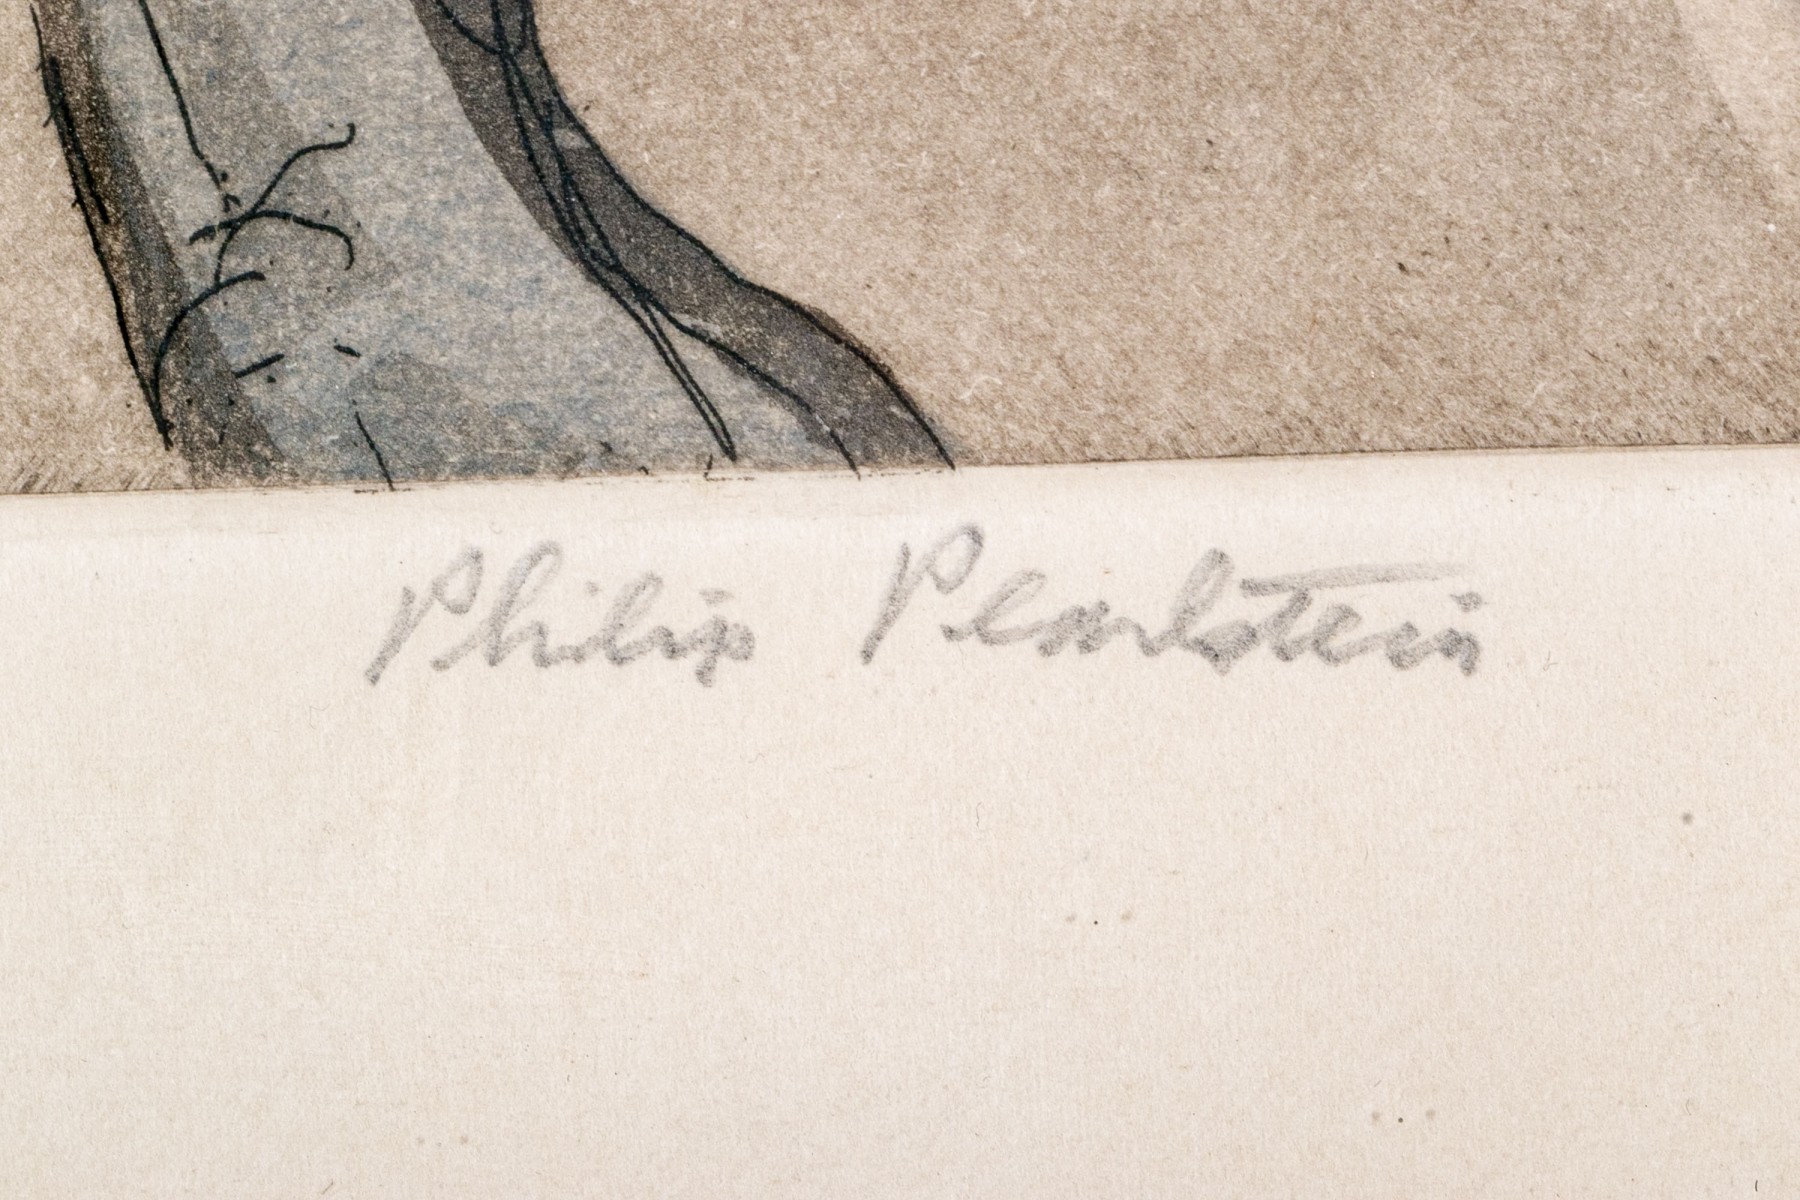 Philip Pearlstein